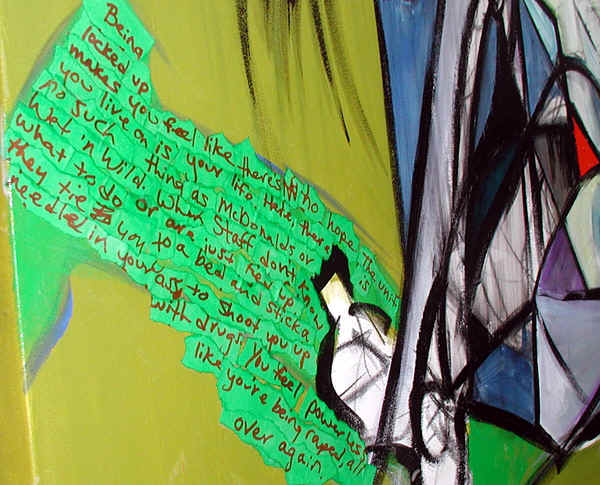 Being
locked up
makes you feel like there's no hope. The unit
you live on is your life. Here, there is
no such thing as McDonalds or
Wet 'n Wild. When staff don't know
what to do or are just fed up,
they tie you to a bed and stick a
needle in your ass to shoot you up
with drugs. You feel powerless
like you're being raped, all
over again.